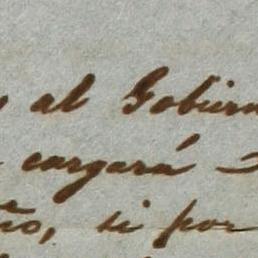 al Gobier
cargará
ño, si por